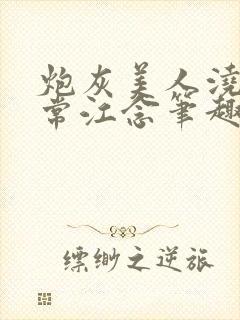 炮灰美人浇
常江念笔趣
缥缈之逆旅